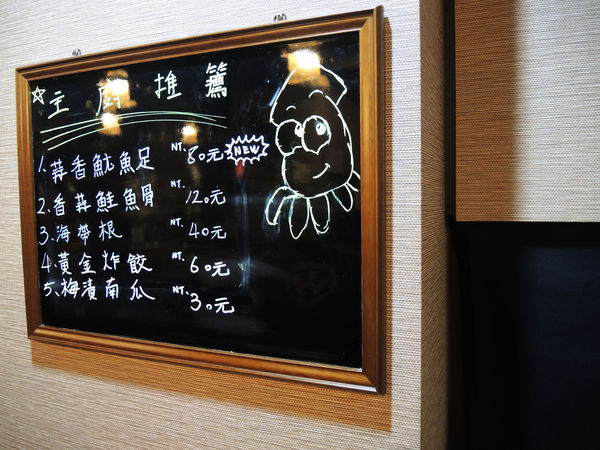 ☆主廚推薦
1. 蒜香魷魚足 NT. 80元 NEW
2. 香蒜鮭魚骨 NT. 120元
3. 海帶根 NT. 40元
4. 黃金炸餃 NT. 60元
5. 梅漬南瓜 NT. 30元